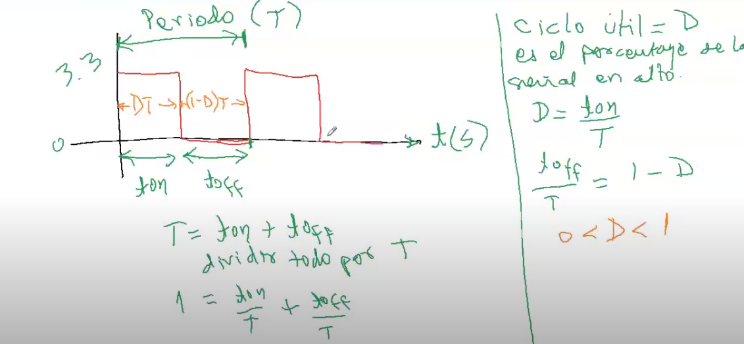 Periodo (T)
3.3
DT
(1-D)T
0
t(s)
ton
toff
T = ton + toff
dividir todo por T
1 = ton/T + toff/T
Ciclo útil = D
es el porcentaje de la
señal en alto.
D = ton/T
toff/T = 1 - D
0 < D < 1